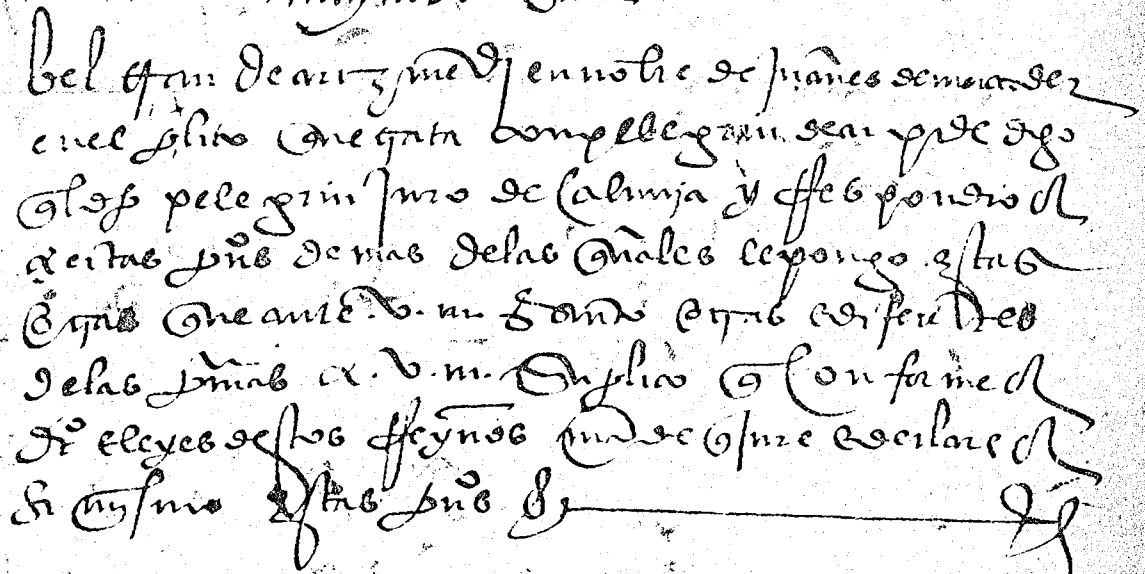 beltran de arizmendi en nonbre de Juanes de
en el plito que trata con pelegrin de digo
ql dho pelegrin Juro de Calunja y Respondio a
çiertas pos demas de las quales le pongo estas
otras que ante v. m. psento otras e diferentes
de las pmas a. v. m. Suplico q Conforme a
dro e leyes destos Reynos mande q Jure e declare a
si mysmo estas pos